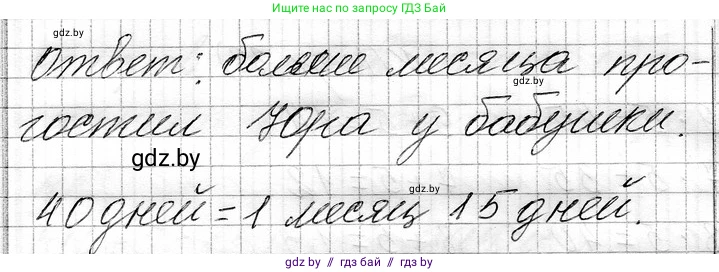 Ищите нас по запросу ГДЗ Бай
gdz.by
Ответ: больше месяца про-
gdz.by
гостил Юра у бабушки.
gdz.by
gdz.by
40 дней = 1 месяц 15 дней.
gdz.by // гдз бай // гдз by